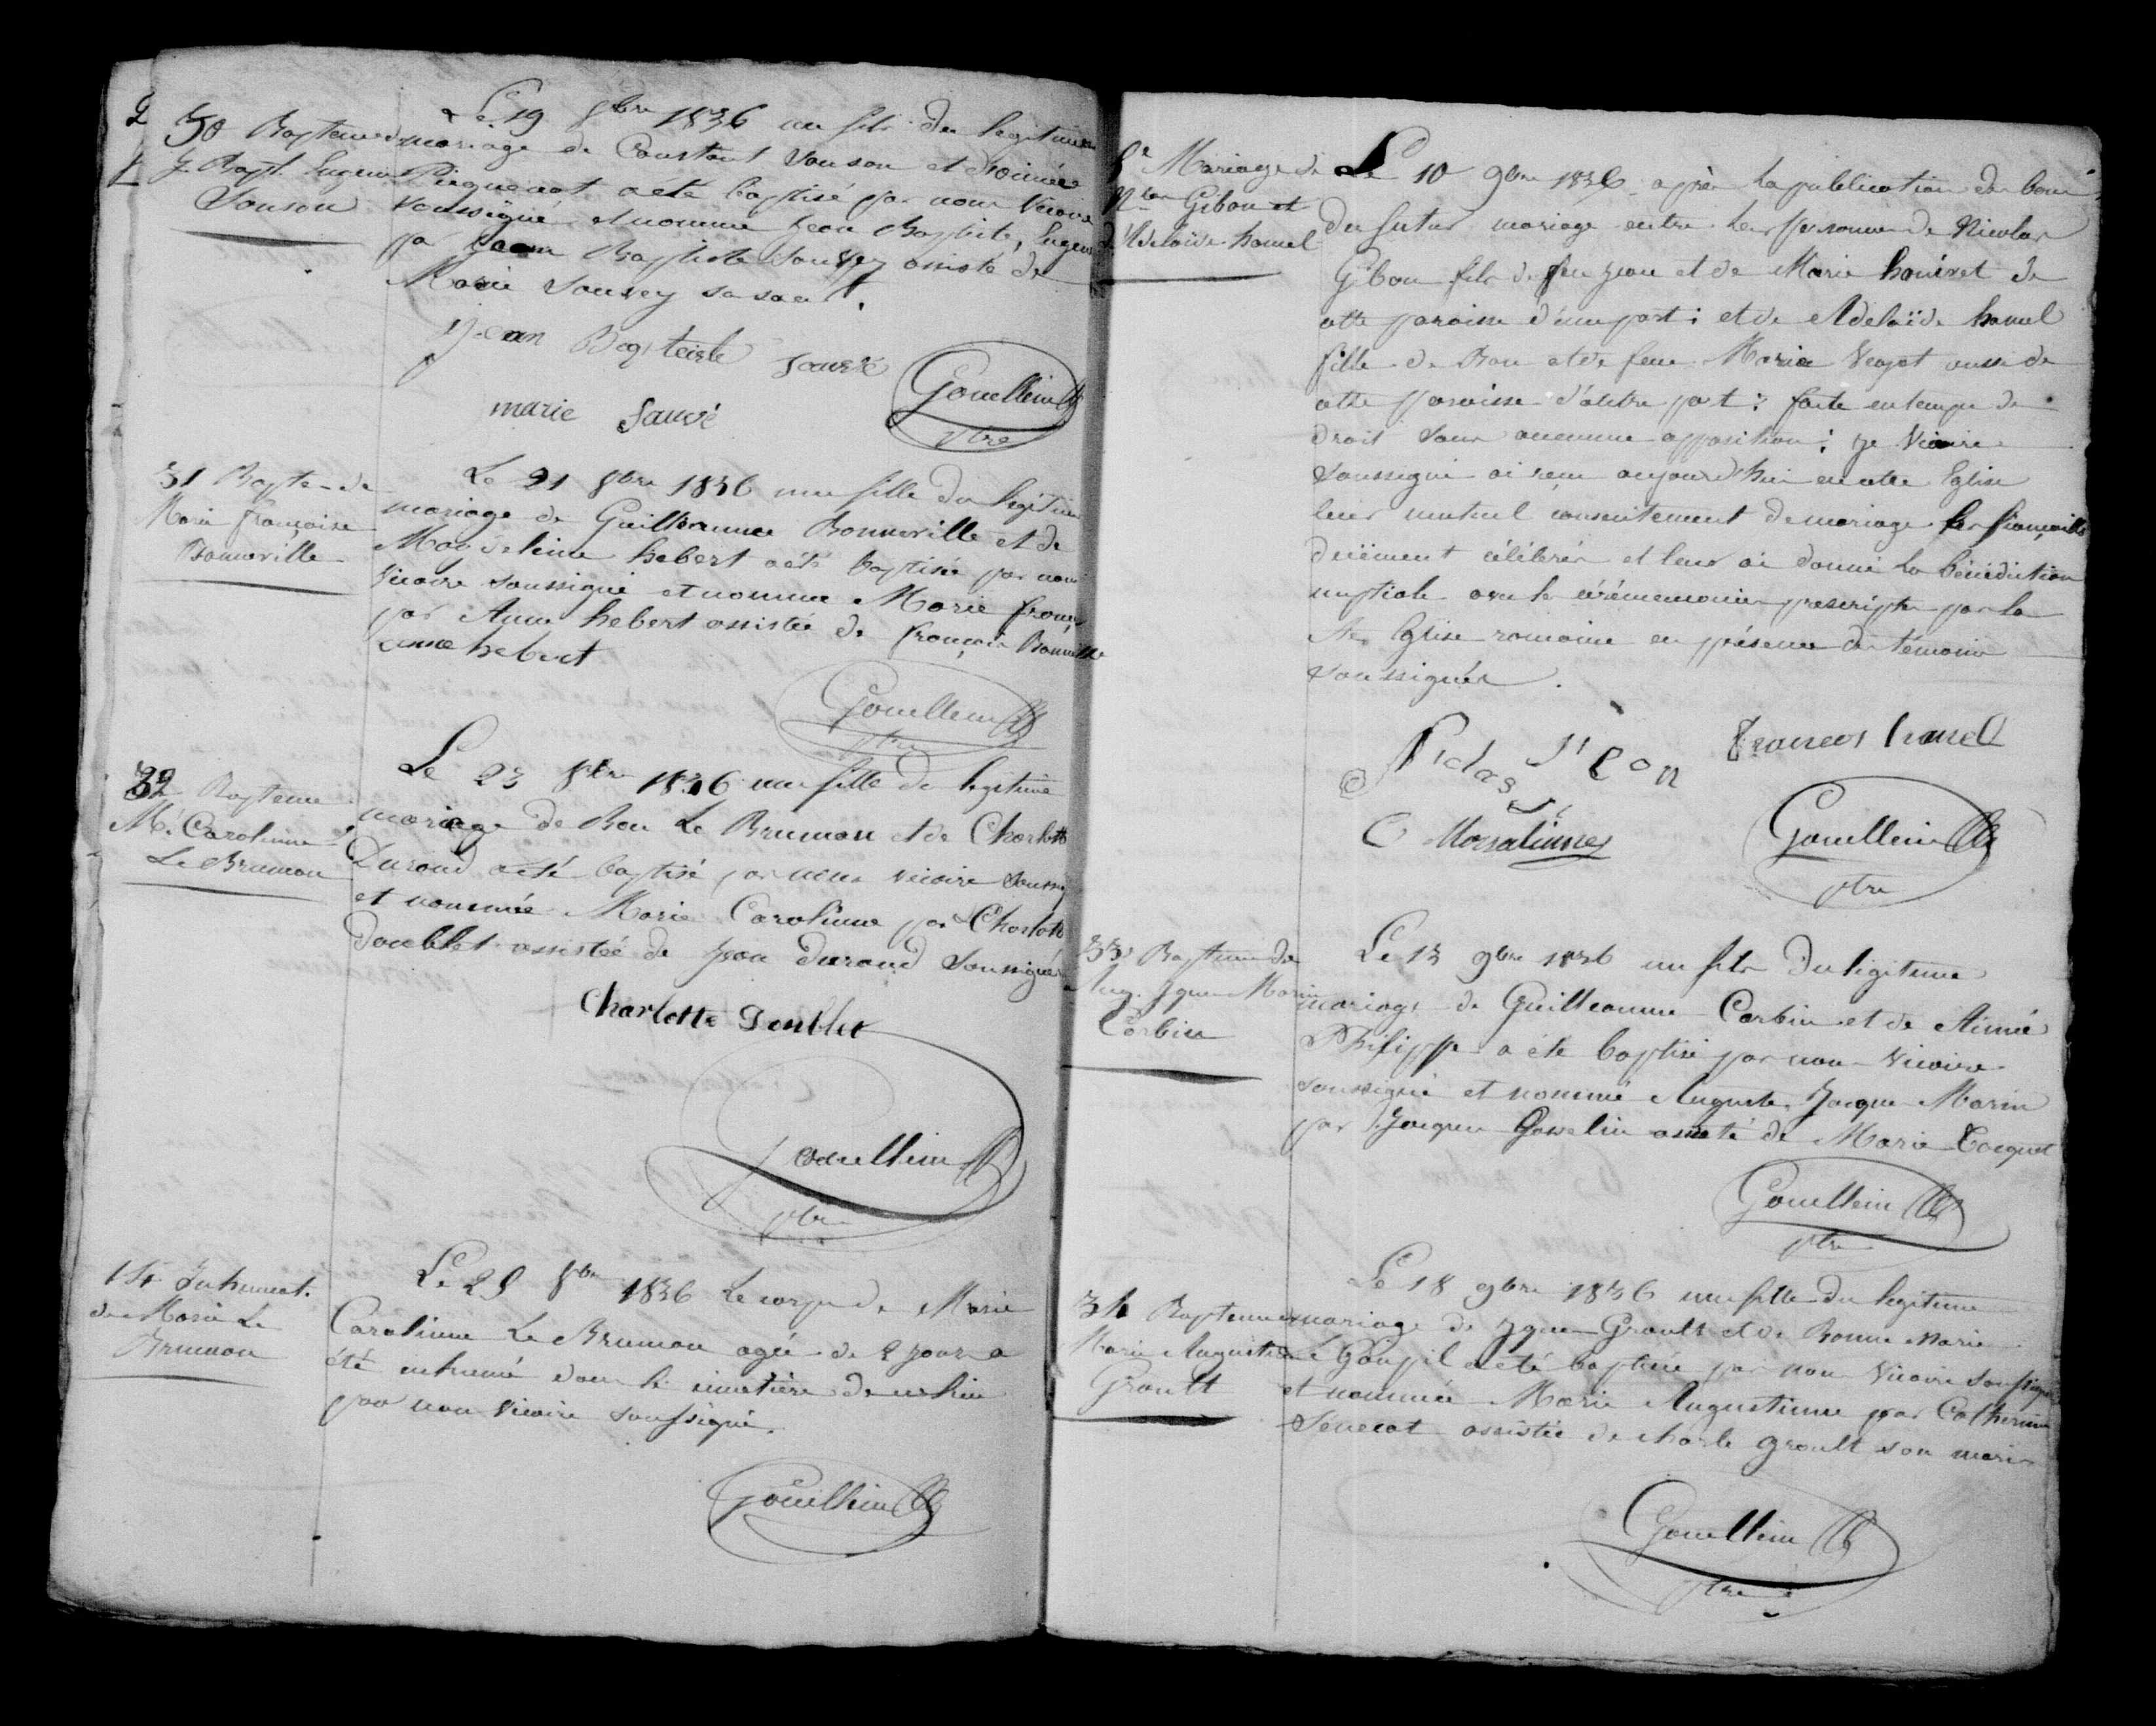 30 Bapteme de
J. Bapt. Eugene
Sanson
Le 19 8bre 1836 un fils du legitime
mariage de Constant Sanson et Desirée
Piquenot a été baptisé par nous Vicaire
soussigné et nommé Jean Baptiste, Eugene
par Jean Baptiste Sauvey assisté de
Marie Sauvey sa soeur.
Jean Bapteiste Sauvé
marie Sauvé
Gouellein
ptre
31 Bapte- de
Marie françoise
Bonneville
Le 21 8bre 1836 une fille du legitime
mariage de Guillaume Bonneville et de
Magdeleine hebert a été baptisée par nous
Vicaire soussigné et nommée Marie franç
par Anne hebert assistée de françois Bonneville
anne hebert
Gouellein
ptre
32 Bapteme
Me Carolinne
Le Brumon
Le 23 8bre 1836 une fille de legitime
mariage de Bon Le Brumon et de Charlotte
Durand a été baptisé par nous vicaire soussig
et nommée Marie Carolinne par Charlotte
Doublet assistée de Jean Durand soussignés
Charlotte Doublet
Gouellein
ptre
14 Inhumat.
de Marie Le
Brumon
Le 25 8bre 1836 Le corps de Marie
Carolinne Le Brumon agée de 2 jours a
été inhumé dans le cimetière de ce lieu
par nous Vicaire soussigné.
Gouellein
Mariage de
Nlas Gibon et
d'Adelaïde hamel
Le 10 9bre 1836 après la publication des bans
du futur mariage entre les personnes de Nicolas
Gibon fils de feu Jean et de Marie
cette paroisse d'une part; et de Adelaïde hamel
fille de Bon et de feue Marie aussi de
cette paroisse d'autre part; faite en temps de
droit sans aucune opposition; je Vicaire
soussigné ai reçu aujourd'hui en cette Eglise
leur mutuel consentement de mariage les fiançailles
duëment célébrés et leur ai donné la bénédiction
nuptiale avec les cérémonies prescriptes par la
Ste Eglise romaine en présence des témoins
soussignés.
francois hamel
Morsalinnes
Gouellein
ptre
33 Bapteme de
Aug. Jque Marin
Corbin
Le 13 9bre 1836 un fils du legitime
mariage de Guilleaume Corbin et de Aimée
Philippe a été baptisé par nous Vicaire
soussigné et nommé Auguste, Jacque Marin
par Jacques Gosselin assisté de Marie Tocquet
Gouellein
ptre
34 Bapteme de
Marie Augustinne
Groult
Le 18 9bre 1836 une fille du legitime
mariage de Jques Groult et de Bonne Marie
Goupil a été baptisée par nous Vicaire soussigné
et nommée Marie Augustinne par Catherine
Senecat assistée de charle groult son mari
Gouellein
ptre